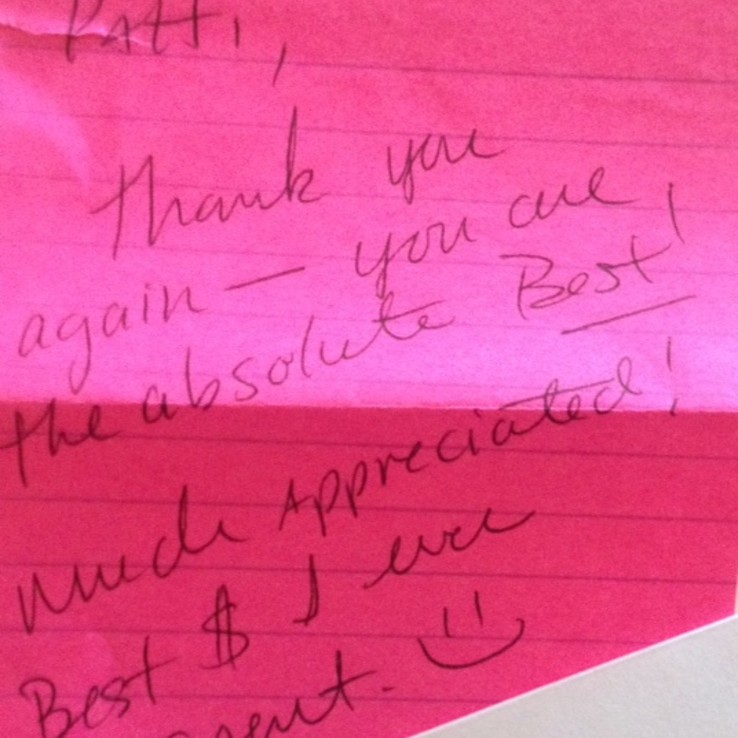 Patti,
Thank you
again — you are
the absolute Best!
Much Appreciated!
Best $ I ever
spent.